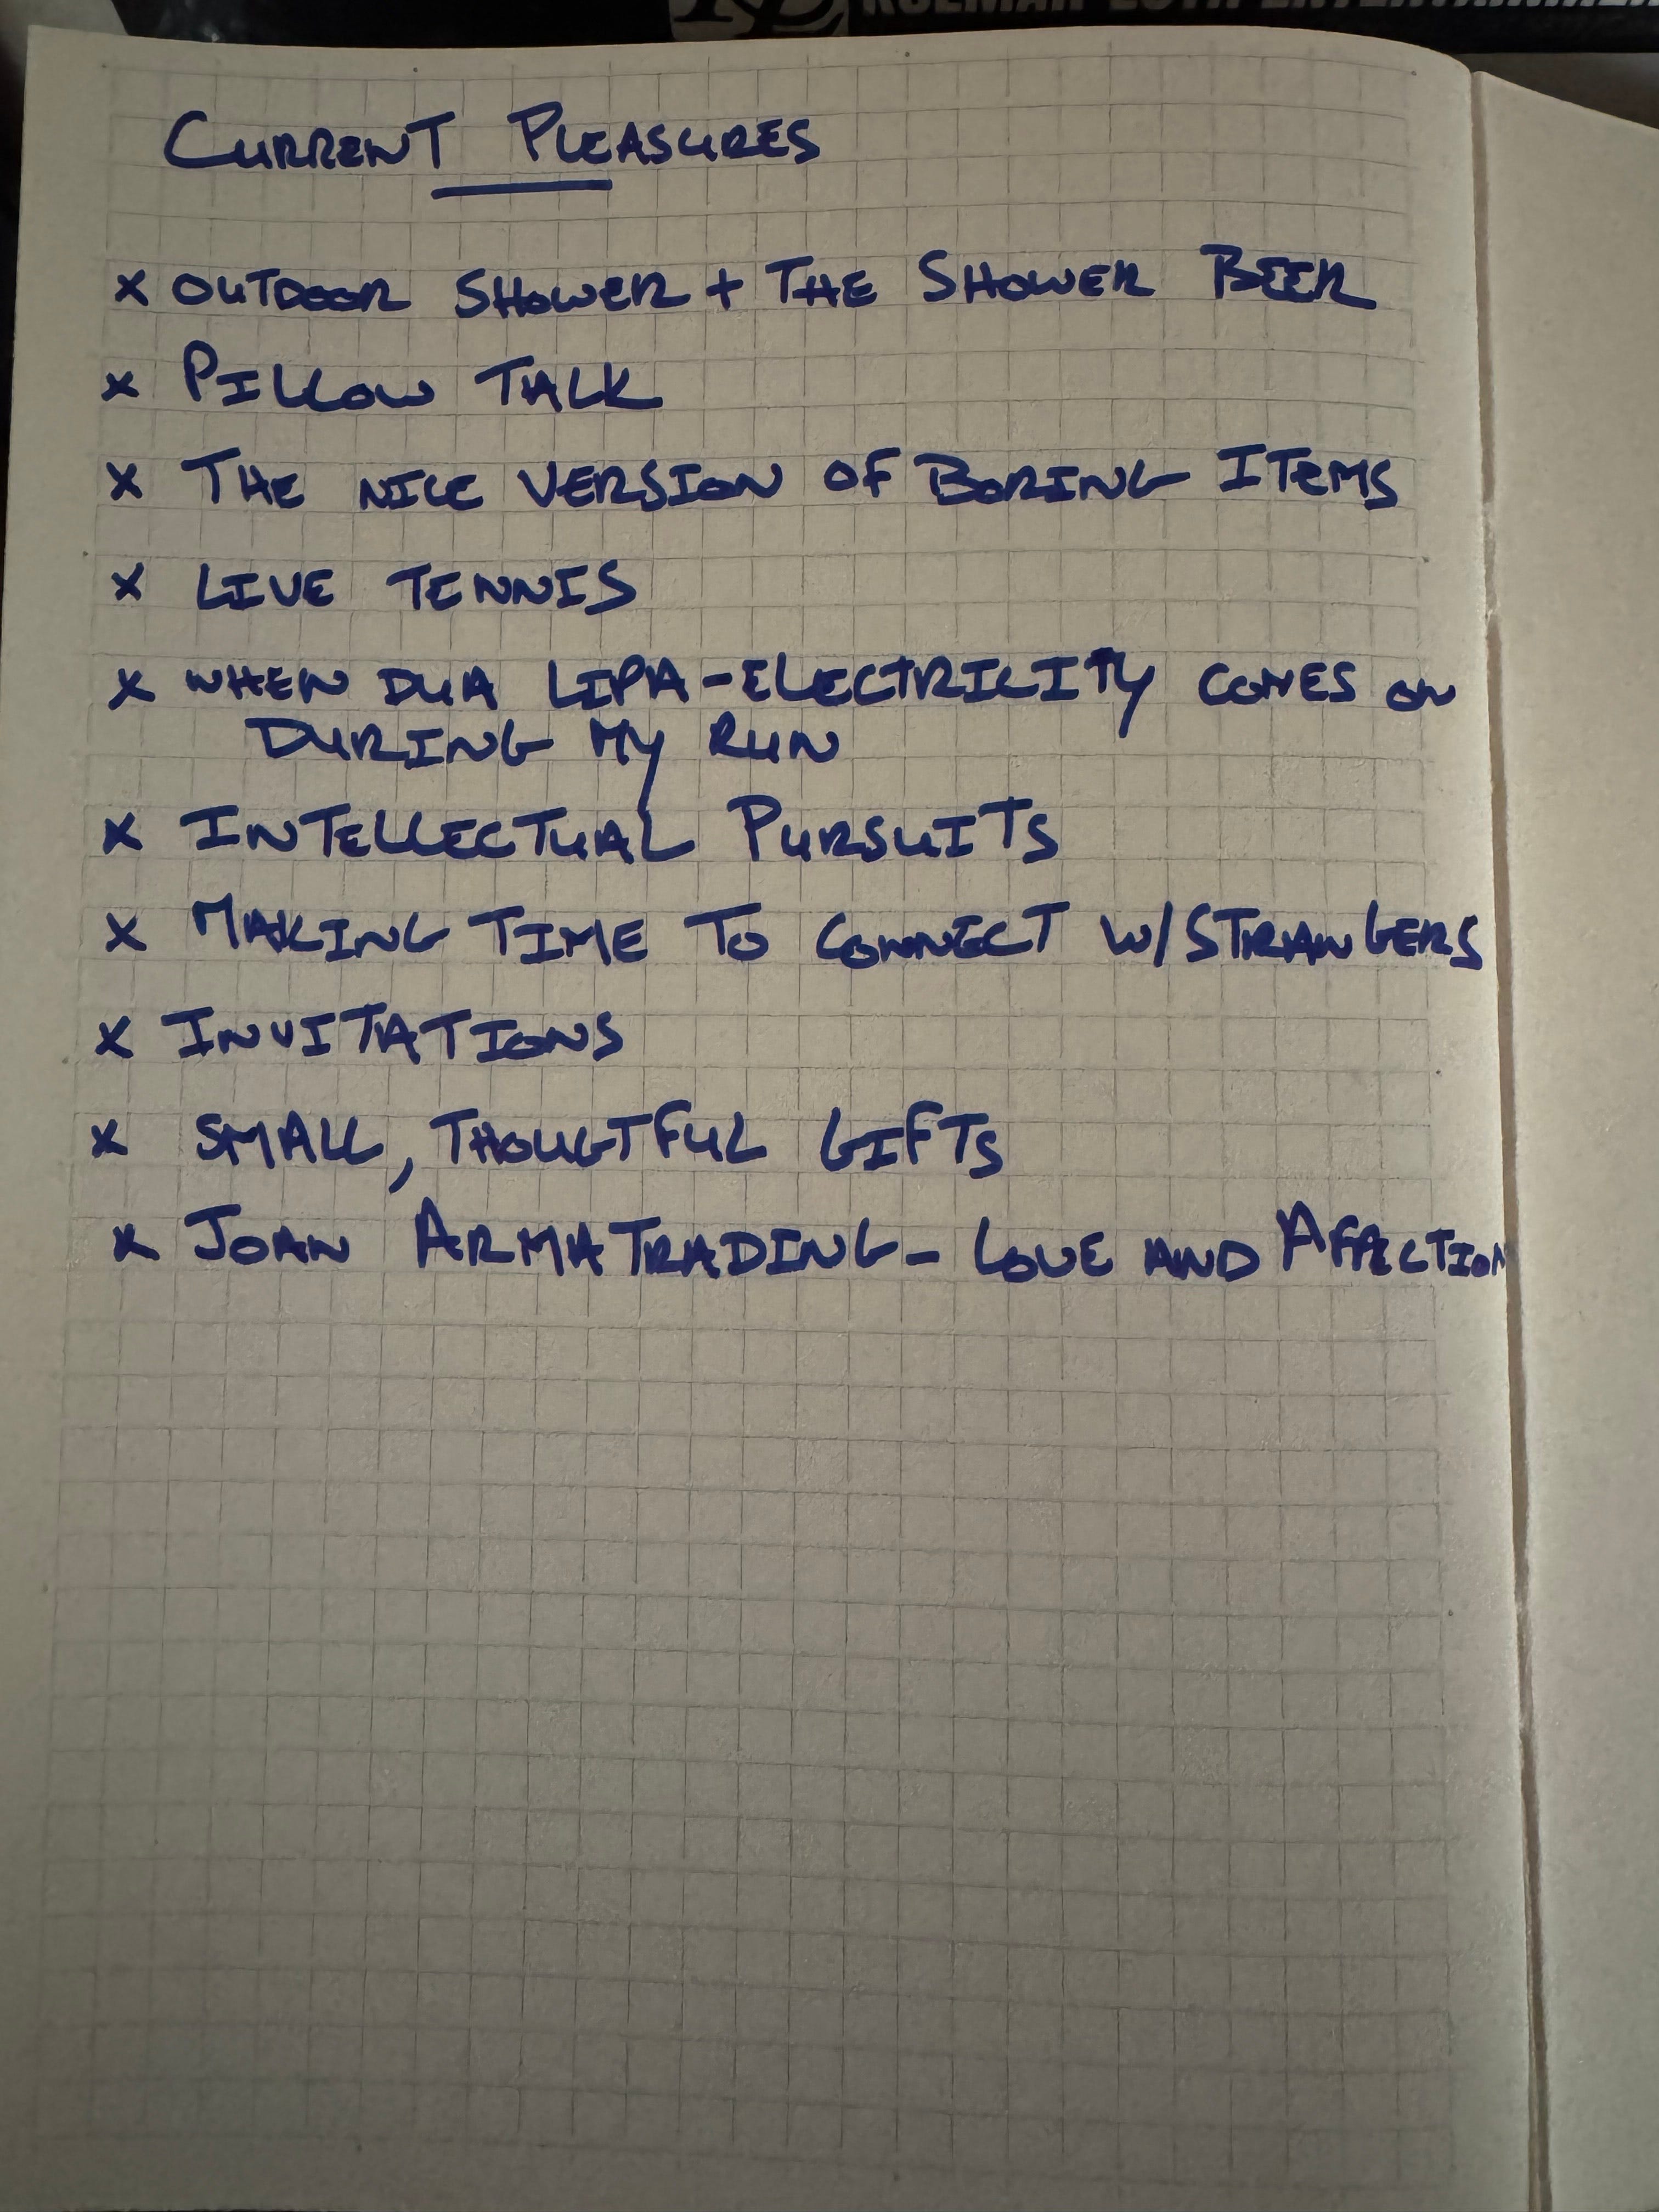 CURRENT PLEASURES
x OUTDOOR SHOWER + THE SHOWER BEER
x PILLOW TALK
x THE NICE VERSION OF BORING ITEMS
x LIVE TENNIS
x WHEN DUA LIPA-ELECTRICITY COMES ON
DURING MY RUN
x INTELLECTUAL PURSUITS
x MAKING TIME TO CONNECT W/STRANGERS
x INVITATIONS
x SMALL, THOUGTFUL GIFTS
x JOAN ARMATRADING- LOVE AND AFFECTION